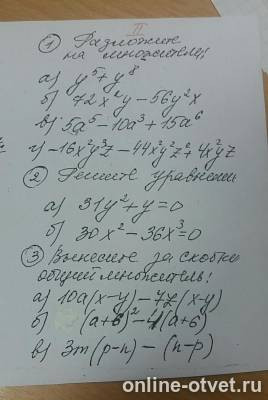 II
① Разложите
на множители:
а) y⁵+y⁸
б) 72x²y-56y²x
в) 5a⁵-10a³+15a⁶
г) -16x²y³z-44x²y²z²+4x²yz
② Решите уравнения
а) 31y²+y=0
б) 30x²-36x³=0
③ Вынесите за скобки
общий множитель:
а) 10a(x-y)-7z(x-y)
б) (a+b)²-4(a+b)
в) 3m(p-n)-(n-p)
online-otvet.ru